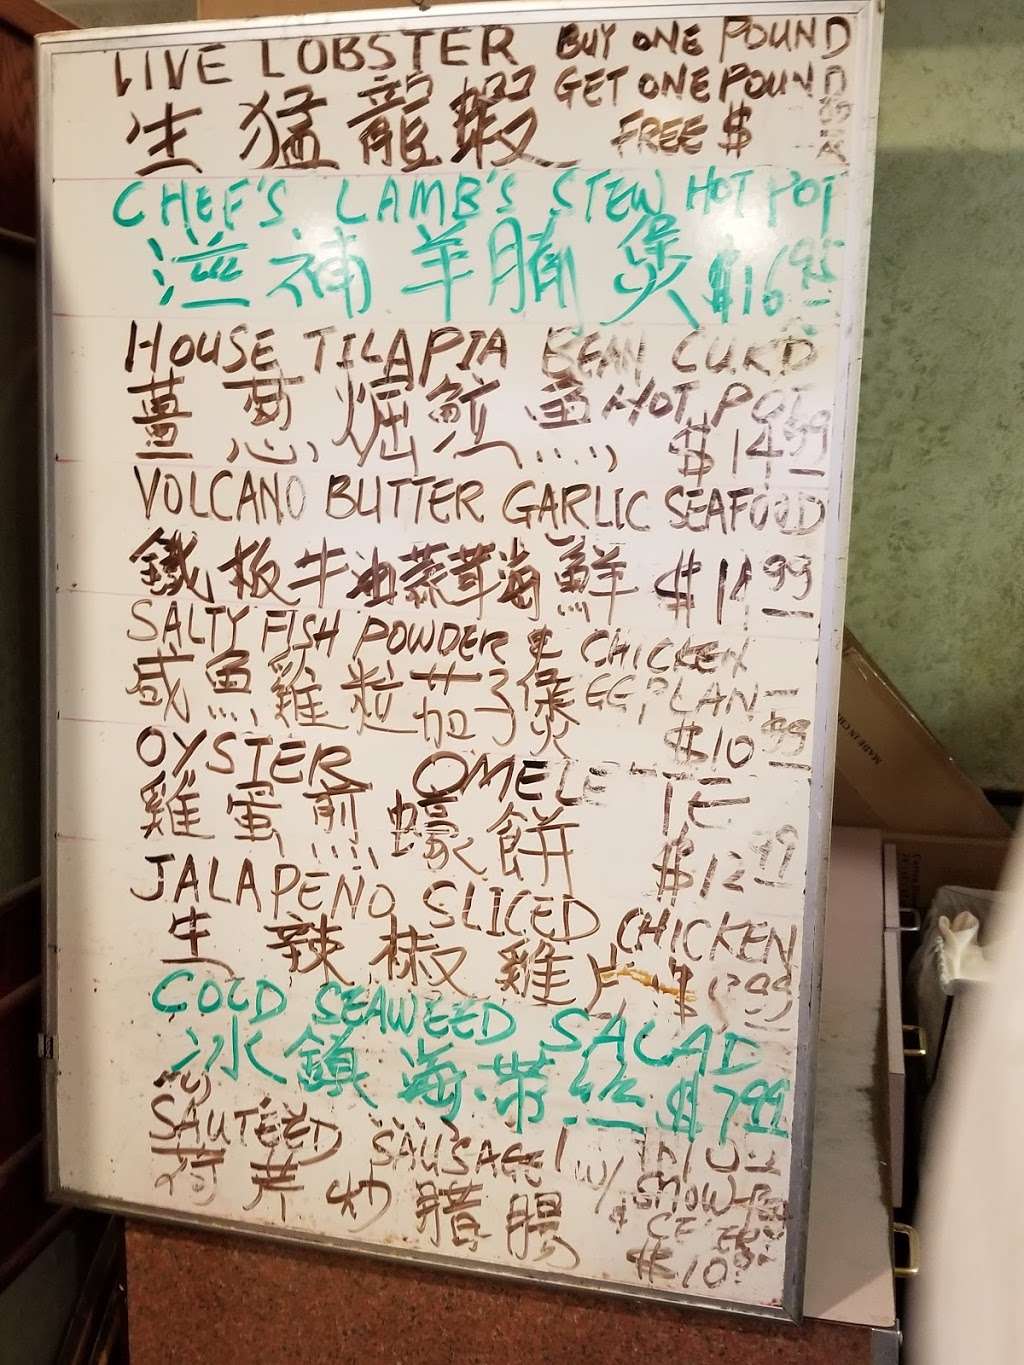 LIVE LOBSTER BUY ONE POUND
GET ONE POUND
生猛龍蝦 FREE $
CHEF'S LAMB'S STEW HOT POT
滋補羊腩煲 $16.95
HOUSE TILAPIA BEAN CURD
薑葱焗魚 HOT POT
$14.99
VOLCANO BUTTER GARLIC SEAFOOD
鐵板牛油蒜茸海鮮 $14.99
SALTY FISH POWDER & CHICKEN
咸魚雞粒茄子煲 EGGPLAN
$10.99
OYSTER OMELETTE
雞蛋煎蠔餅
$12.99
JALAPENO SLICED CHICKEN
生辣椒雞片 $
COLD SEAWEED SALAD
冰鎮海帶絲 $7.99
SAUTEED SAUSAGE W/
荷芹炒腊腸 & SNOW PEA
$10.95
MADE IN